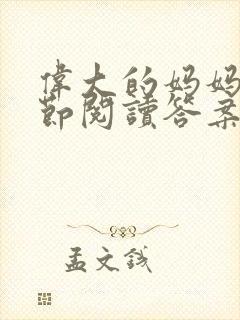 偉大的妈妈
節閱讀答案
孟文錢